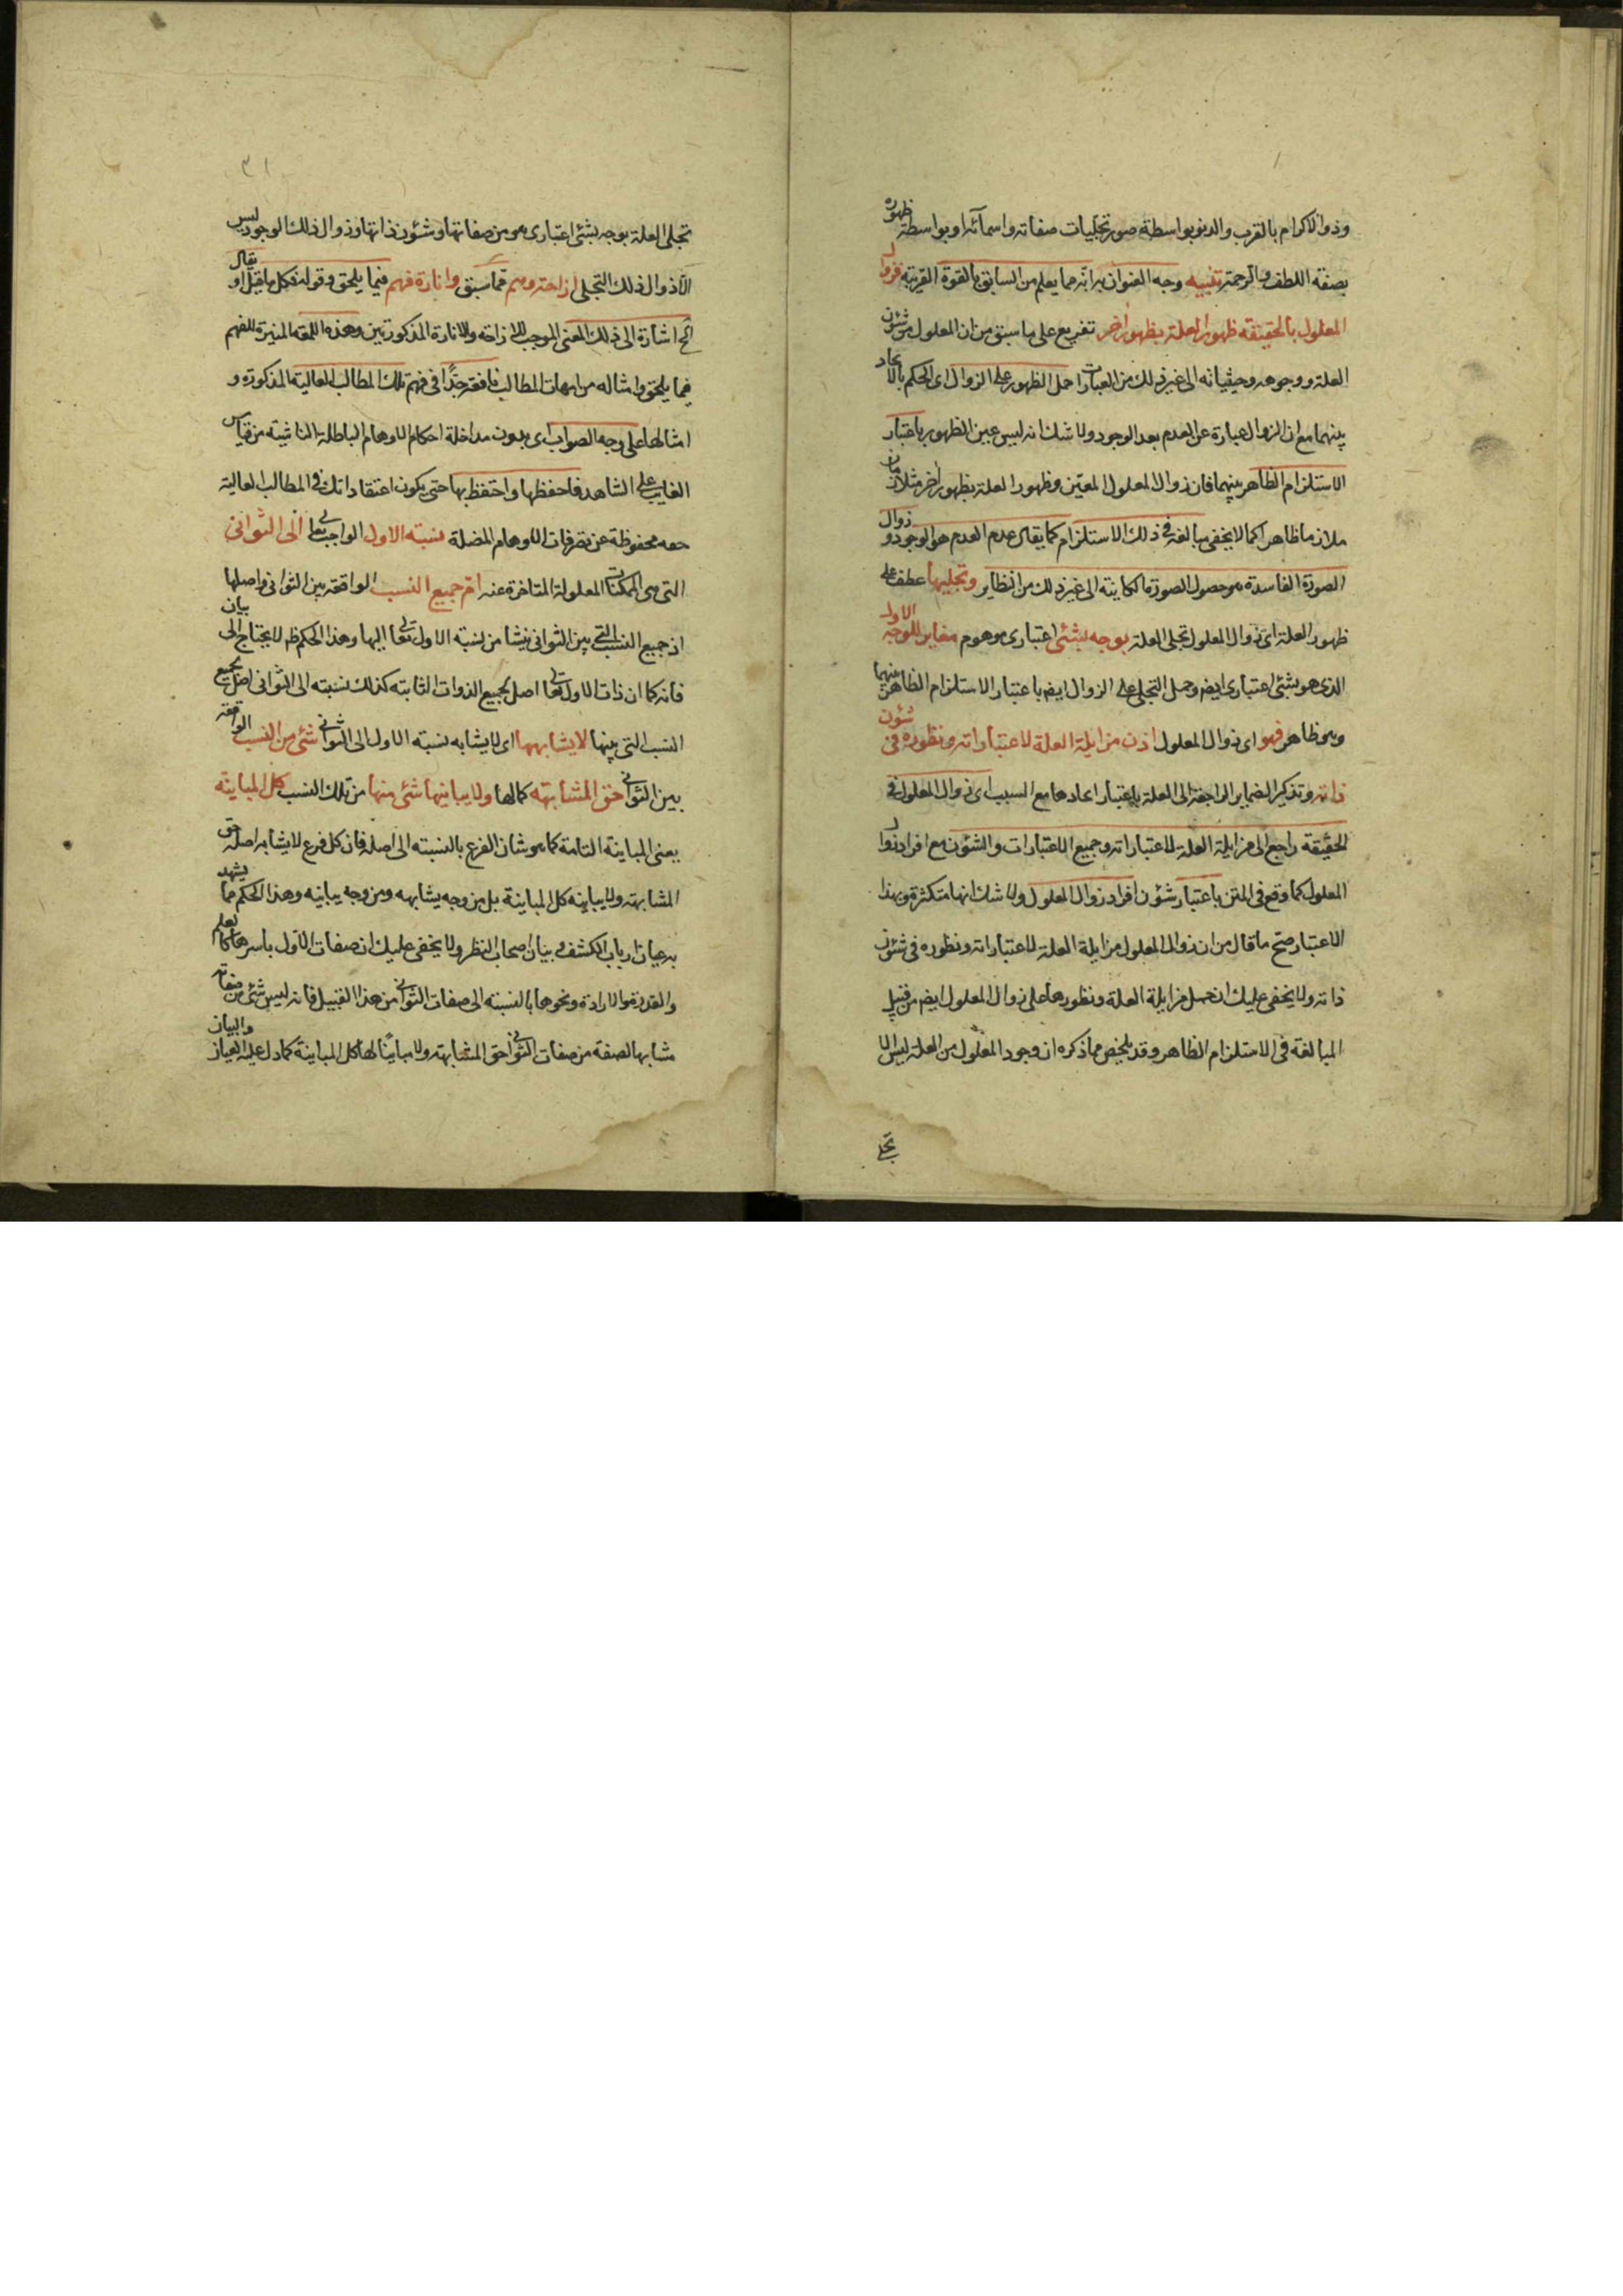 وذو الاكرام بالقرب والدنو بواسطة صور تجليات صفاته واسمآئه او بواسطة ظهوره
بصفة اللطف والرحمة تنبيه وجه العنوان به انه مما يعلم من السابق بالقوة القريبة فزوال
المعلول بالحقيقة ظهور العلة بظهور اخر تفريع على ما سبق من ان المعلول من شئون
العلة ووجوهه وحيثياته الى غير ذلك من العبارات حمل الظهور على الزوال اى الحكم بالاتحاد
بينهما مع ان الزوال عبارة عن العدم بعد الوجود ولا شك انه ليس عين الظهور باعتبار
الاستلزام الظاهر بينهما فان زوال المعلول المعين وظهور العلة بظهور اخر مثلازمان
ملازما ظاهرا كما لا يخفى مبالغة فى ذلك الاستلزام كما يقال عدم العدم هو الوجود و زوال
الصورة الفاسدة هو حصول الصورة الكاينة الى غير ذلك من النظاير وتجليها عطف على
ظهور العلة اى زوال المعلول تجلى العلة بوجه بشئ اعتبارى موهوم مغاير للوجه الاول
الذى هو بشئ اعتبارى ايضا وحمل التجلى على الزوال ايضا باعتبار الاستلزام الظاهر بينهما
وهو ظاهر فهو اى زوال المعلول اذن مزايلة العلة لاعتباراته وتطوره فى شئون
ذاته وتذكير الضماير الراجعة الى العلة باعتبار اتحادها مع السبب اى زوال المعلول فى
الحقيقة راجع الى مزايلة العلة لاعتباراته وجميع الاعتبارات والشئون مع افراد زوال
المعلول كما وقع فى المتن باعتبار شئون افراد زوال المعلول ولا شك انها متكثرة وبهذا
الاعتبار صح ما قال من ان زوال المعلول مزايلة العلة لاعتباراته وتطوره فى شئون
ذاته ولا يخفى عليك ان حمل مزايلة العلة وتطورها على زوال المعلول ايضا من قبيل
المبالغة فى الاستلزام الظاهر وقد يلخص مما ذكره ان وجود المعلول من العلة ليس الا
تجلى
٣١
تجلى العلة بوجه بشئ اعتبارى هو من صفاتها وشئون ذاتها وزوال ذلك الوجود ليس
الا زوال ذلك التجلى ازاحة وهم مما سبق وانارة فهم فيما يلحق وقوله فكل ما قيل او يقال
الخ اشارة الى ذلك المعنى الموجب للازاحة والانارة المذكورتين وهذه اللمعة المنيرة للفهم
فيما يلحق وامثاله من امهات المطالب نافعة جدا فى فهم تلك المطالب العالية المذكورة و
امثالها على وجه الصواب اى بدون مداخلة احكام الاوهام الباطلة الناشئة من قياس
الغايب على الشاهد فاحفظها واحتفظ بها حتى يكون اعتقاداتك فى المطالب العالية
حقه محفوظة عن تصرفات الاوهام المضلة نسبة الاول الواجب تعالى الى الثوانى
التى هى الممكنات المعلولة المتاخرة عنه ام جميع النسب الواقعة بين الثوانى واصلها
اذ جميع النسب التى بين الثوانى ينشأ من نسبة الاول تعالى اليها وهذا الحكم ظ لا يحتاج الى بيان
فانه كما ان ذات الاول تعالى اصل لجميع الذوات الثابتة كذلك نسبته الى الثوانى اصل لجميع
النسب التى بينها لا يشابهها اى لا يشابه نسبة الاول الى الثوانى شئ من النسب الواقعة
بين الثوانى حق المشابهة كمالها ولا يباينها شئ منها من تلك النسب كل المباينة
يعنى المباينة التامة كما هو شان الفرع بالنسبة الى اصله فان كل فرع لا يشابه اصله حق
المشابهة ولا يباينه كل المباينة بل من وجه يشابهه ومن وجه يباينه وهذا الحكم مما يشهد
به عيان ارباب الكشف و بيان اصحاب النظر ولا يخفى عليك ان صفات الاول باسرها كالعلم
والقدرة والارادة ونحوها بالنسبة الى صفات الثوانى من هذا القبيل فانه ليس شئ من صفاته
مشابها لصفة من صفات الثوانى حق المشابهة ولا مباينا لها كل المباينة كما دل عليه العيان والبيان